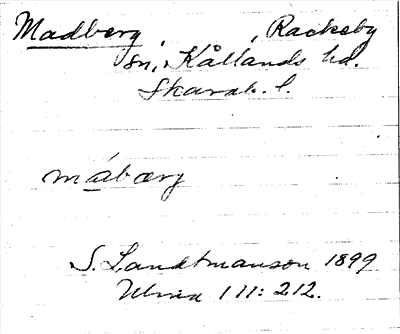 Madberg, , Rackeby
sn., Kållands hd.
Skarab. l.
mábærg
S. Landtmanson 1899
Ulma 111: 212.